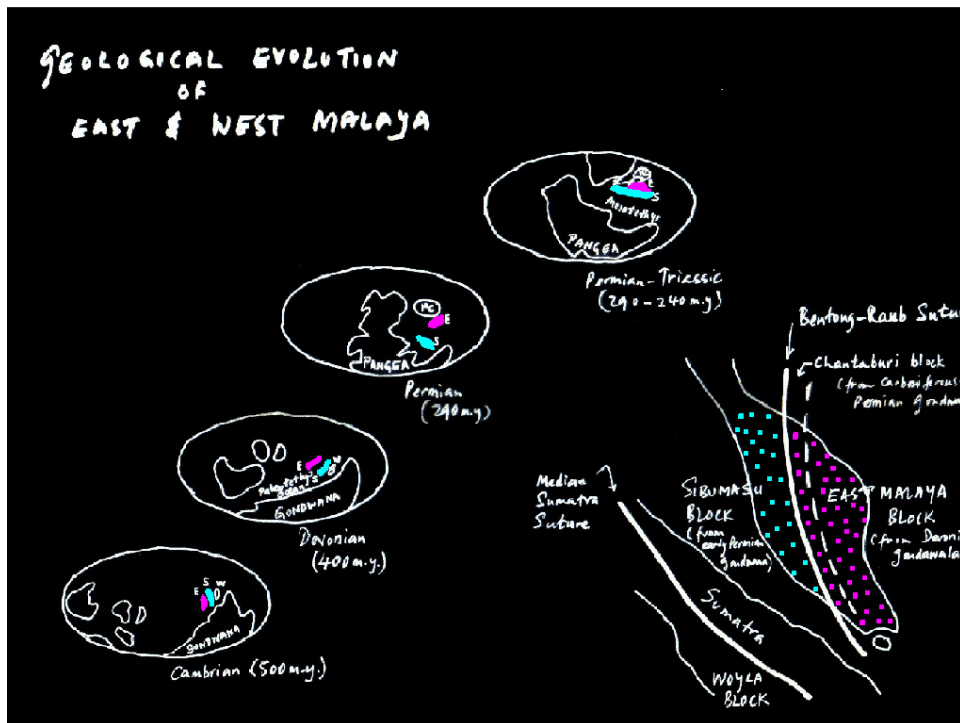 GEOLOGICAL EVOLUTION
OF
EAST & WEST MALAYA
E
S
Mesotethys
PANGEA
Permian-Triassic
(290-240 m.y)
NC
E
S
PANGEA
Permian
(290 m.y)
E
W
S
Paleotethys
Ocean
GONDWANA
Devonian
(400 m.y.)
S
W
E
GONDWANA
Cambrian (500 m.y.)
Bentong-Raub Sutur
Chantaburi block
(from Carboniferous-
Permian gondwa
Median
Sumatra
Suture
SIBUMASU
BLOCK
(from
early Permian
gondwana)
EAST MALAYA
BLOCK
(from Devoni
gondwala
Sumatra
WOYLA
BLOCK